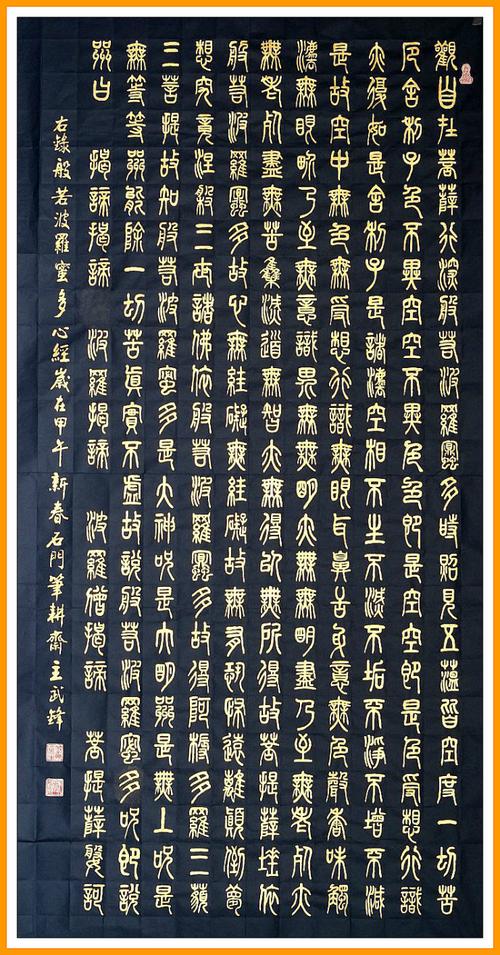 觀自在菩薩行深般若波羅蜜多時照見五蘊皆空度一切苦
厄舍利子色不異空空不異色色即是空空即是色受想行識
亦復如是舍利子是諸灋空相不生不滅不垢不淨不增不減
是故空中無色無受想行識無眼耳鼻舌身意無色聲香味觸
灋無眼界乃至無意識界無無明亦無無明盡乃至無老死亦
無老死盡無苦集滅道無智亦無得以無所得故菩提薩埵依
般若波羅蜜多故心無罣礙無罣礙故無有恐怖遠離顛倒夢
想究竟涅槃三世諸佛依般若波羅蜜多故得阿耨多羅三藐
三菩提故知般若波羅蜜多是大神咒是大明咒是無上咒是
無等等咒能除一切苦真實不虛故說般若波羅蜜多咒即說
咒曰 揭諦揭諦 波羅揭諦 波羅僧揭諦 菩提薩婆訶
右錄般若波羅蜜多心經歲在甲午新春石門筆耕齋主武鋒